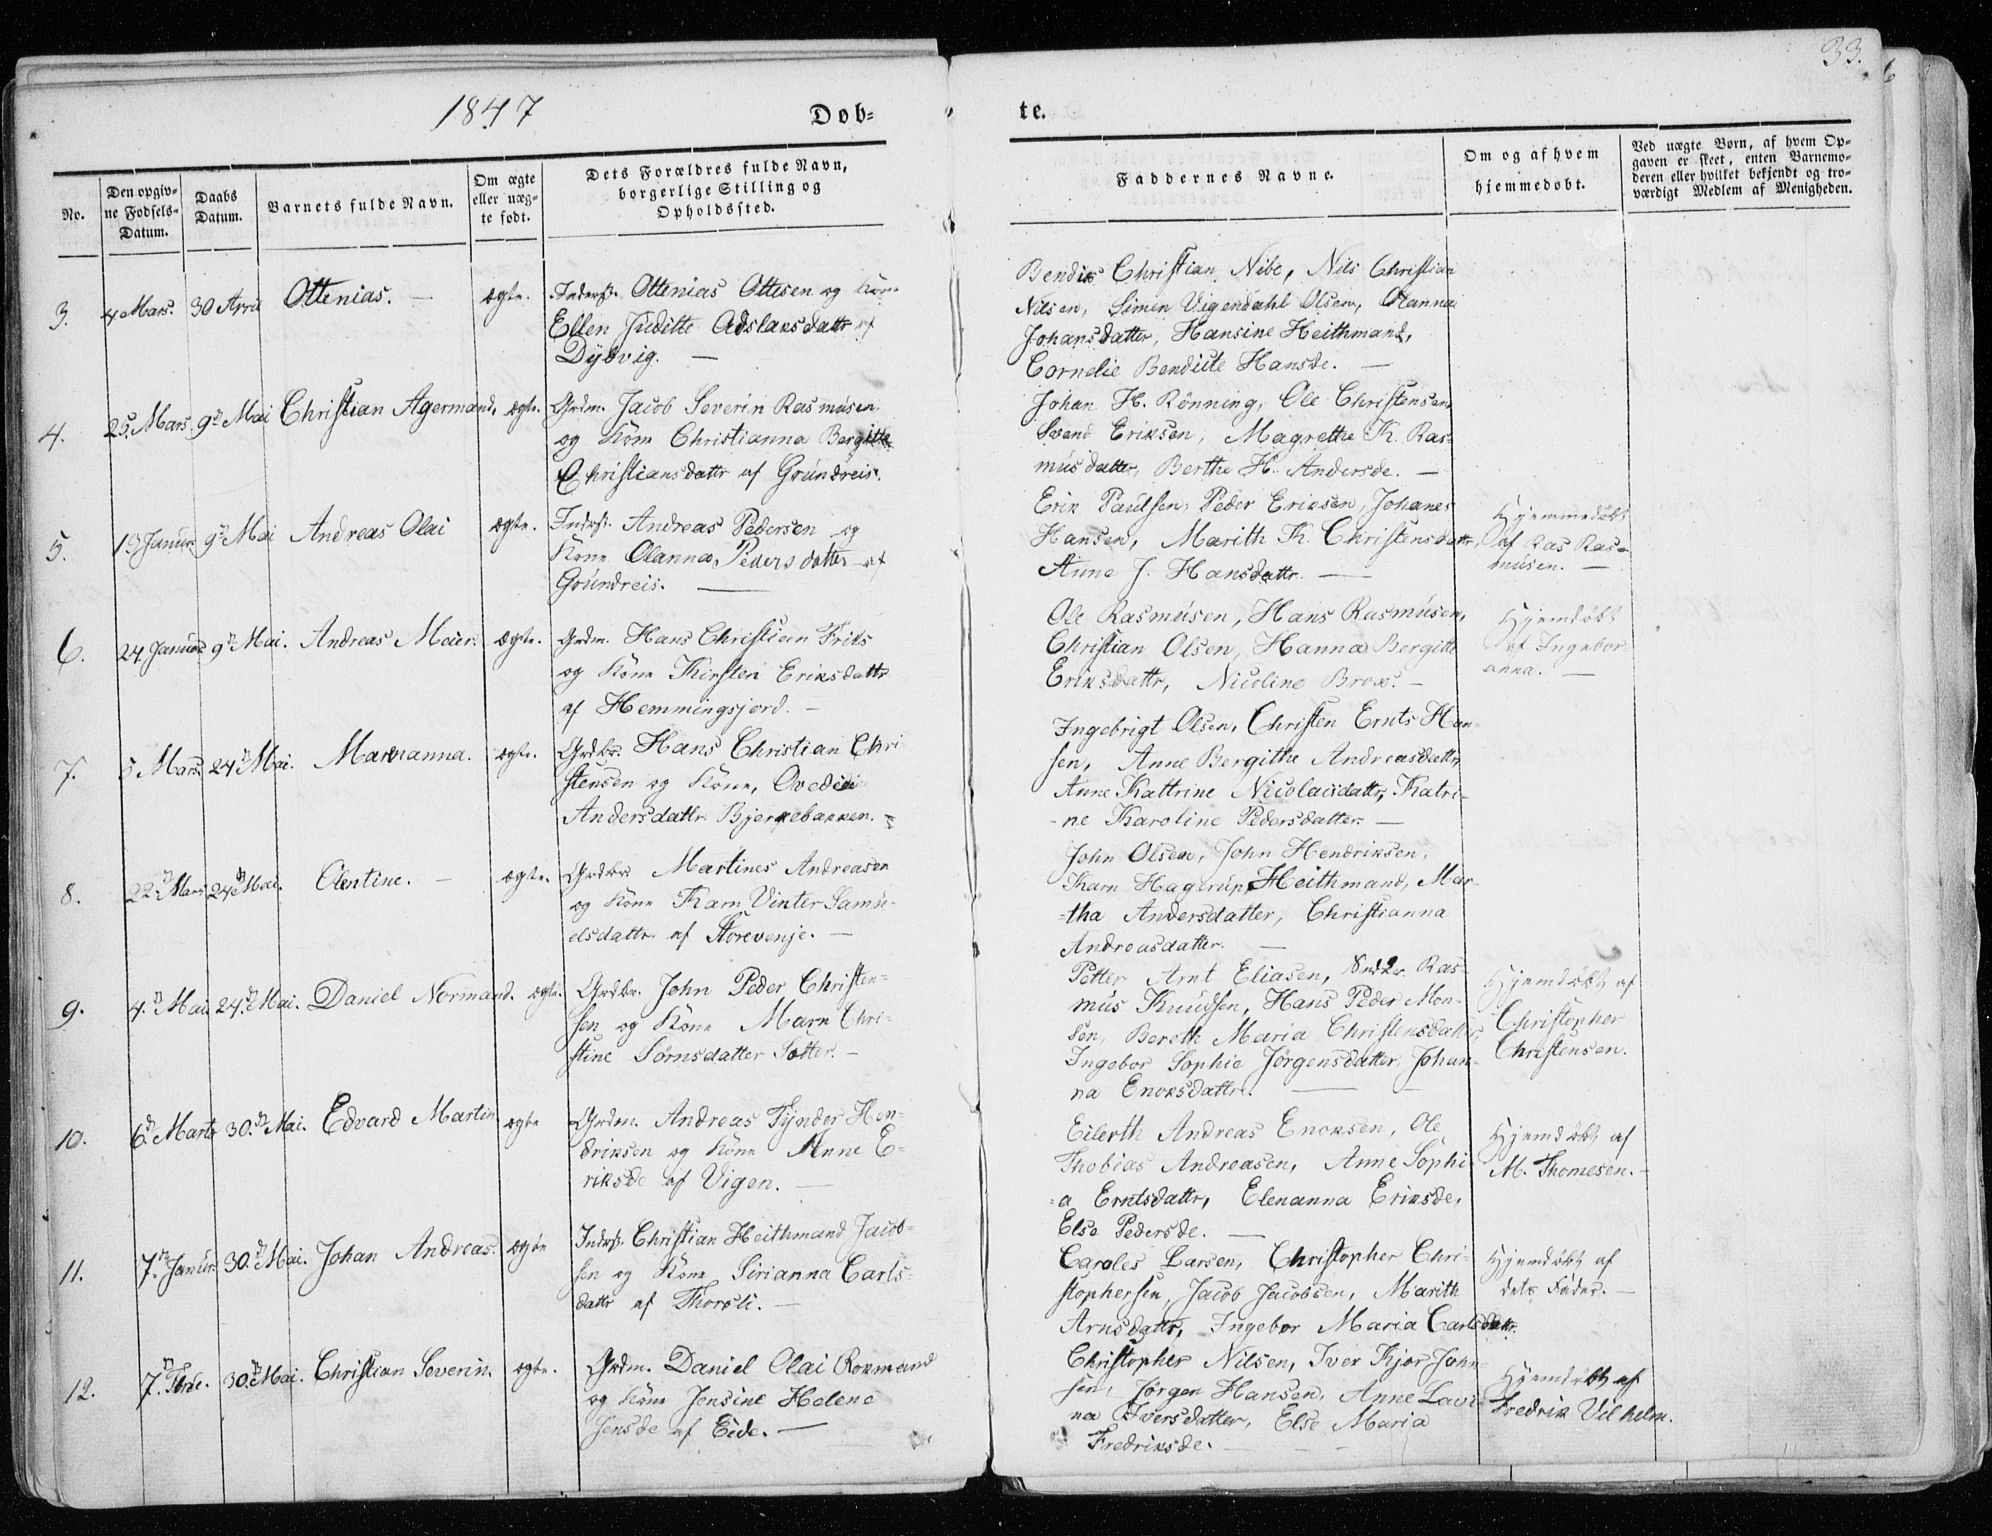 33.
1847
Døb-
te.
No.
Den opgiv-
ne Fødsels-
Datum.
Daabs
Datum.
Barnets fulde Navn.
Om ægte
eller uæg-
te født.
Dets Forældres fulde Navn,
borgerlige Stilling og
Opholdssted.
Faddernes Navne.
Om og af hvem
hjemmedøbt.
Ved uægte Børn, af hvem Op-
gaven er skeet, enten Barnemo-
deren eller hvilket bekjendt og tro-
værdigt Medlem af Menigheden.
3. 4 Mars. 30 April Ottenias. — ægte. Inderst. Ottenias Ottesen og Kone
Ellen Juditte Adslaksdattr af
Dybvig. —
Bendix Christian Nibe, Nils Christian
Nilsen, Simen Vigendahl Olsen, Olanna
Johansdatter, Hansine Heithmand,
Cornelie Bendicte Hansde. —
4. 25 Mars 9de Mai Christian Agermand, ægte. Grdm. Jacob Severin Rasmusen
og Kone Christianna Bergitte
Christiansdattr af Grundreis.
Johan H. Rønning, Ole Christensen,
Svend Eriksen, Magrethe K. Ras-
musdatter, Berthe H. Andersde. —
5. 13 Januar. 9de Mai Andreas Olai ægte. Inderst. Andreas Pedersen og
Kone Olanna Pedersdatter af
Grundreis. —
Erik Paulsen, Peder Eriksen, Johanes
Hansen, Marith K. Christensdattr,
Anne J. Hansdattr. —
Hjemmedøbt
af Ras Ras-
musen. —
6. 24 Januar 9de Mai. Andreas Meier. ægte. Grdm. Hans Christian Friis
og Kone Kirsten Eriksdattr
af Hemmingsjord. —
Ole Rasmusen, Hans Rasmusen,
Christian Olsen, Hanna Bergitte
Eriksdattr, Nicoline Brox. —
Hjemdøbt
af Ingebor
anna. —
7. 5 Mars. 24de Mai. Marianna. ægte. Grdbr. Hans Christian Chri
stensen og Kone, Ovedia
Andersdattr Bjerkebakken.
Ingebrigt Olsen, Christen Ernts Han-
sen, Anne Bergithe Andreasdattr,
Anne Kattrine Nicolaisdattr, Katri-
-ne Karoline Pedersdatter. —
8. 22de Mars 24de Mai. Olentine. — ægte. Grdbr Martines Andreasen
og Kone Karn Vinter Samu-
elsdattr. af Storevenje. —
John Olsen, John Hendriksen,
Karn Hagerup Heithmand, Mar-
-tha Andersdatter, Christianna
Andreasdatter. —
9. 4de Mai 24de Mai. Daniel Normand. ægte. Grdbr. John Peder Christen-
sen og Kone Marn Chri-
stine Sørnsdatter Sætter. —
Petter Arnt Eliasen, Ras-
mus Knudsen, Hans Peder Mon-
sen, Bereth Maria Christensdatter,
Ingebor Sophie Jørgensdatter, Johan-
na Enoksdattr. —
Hjemdøbt af
Christopher
Christensen.
10. 6de Marts 30de Mai. Edvard Martin ægte Grdm. Andreas Tynder Hen-
driksen og Kone Anne E-
riksde af Vigen. —
Eilerth Andreas Enoksen, Ole
Thobias Andreasen, Anne Sophi-
-a Erntsdattr, Elenanna Eriksde,
Else Pedersde. —
Hjemdøbt af
M. Thomesen. —
11. 7de Januar. 30de Mai. Johan Andreas. ægte Inderst. Christian Heithmand Jacob-
sen og Kone Sirianna Carls-
dattr af Thorsli. —
Caroles Larsen, Christopher Chri-
stophersen, Jacob Jacobsen, Marith
Arnsdattr, Ingebor Maria Carlsdatr.
Hjemdøbt af
dets Fader. —
12. 7de 30de Mai. Christian Severin. ægte. Grdm. Daniel Olai Normand
og Kone Jensine Helene
Jensde af Eide. —
Christopher Nilsen, Iver Kjer John-
sen, Jørgen Hansen, Anne Lavi-
na Iversdatter, Else Maria
Fredriksde. —
Hjemdøbt af
Fredrik Vilhelm.